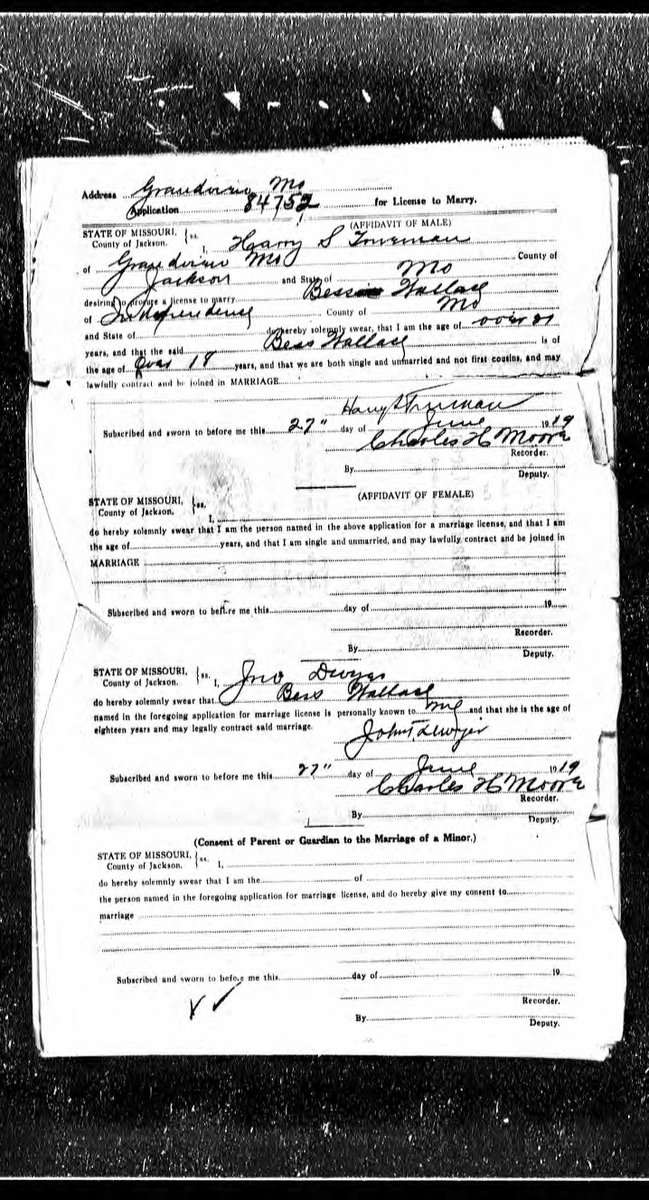 Address Grandview Mo
Application 84752 for License to Marry.
(AFFIDAVIT OF MALE)
STATE OF MISSOURI, } ss.
County of Jackson. I, Harry S Trueman
of Grandview Mo County of
Jackson and State of Mo
desiring to procure a license to marry Bess Wallace
of Independence County of Mo
and State of do hereby solemnly swear, that I am the age of over 21
years, and that the said Bess Wallace is of
the age of over 18 years, and that we are both single and unmarried and not first cousins, and may
lawfully contract and be joined in MARRIAGE.
Harry S Truman
Subscribed and sworn to before me this 27" day of June 1919
Charles H Moore
Recorder.
By
Deputy.
(AFFIDAVIT OF FEMALE)
STATE OF MISSOURI, } ss.
County of Jackson. I,
do hereby solemnly swear that I am the person named in the above application for a marriage license, and that I am
the age of years, and that I am single and unmarried, and may lawfully, contract and be joined in
MARRIAGE
Subscribed and sworn to before me this day of 19
Recorder.
By
Deputy.
STATE OF MISSOURI, } ss.
County of Jackson. I, Jno Dwyer
do hereby solemnly swear that Bess Wallace
named in the foregoing application for marriage license is personally known to me and that she is the age of
eighteen years and may legally contract said marriage.
John F Dwyer
Subscribed and sworn to before me this 27" day of June 1919
Charles H Moore
Recorder.
By
Deputy.
(Consent of Parent or Guardian to the Marriage of a Minor.)
STATE OF MISSOURI, } ss.
County of Jackson. I,
do hereby solemnly swear that I am the of
the person named in the foregoing application for marriage license, and do hereby give my consent to
marriage
Subscribed and sworn to before me this day of 19
Recorder.
By
Deputy.